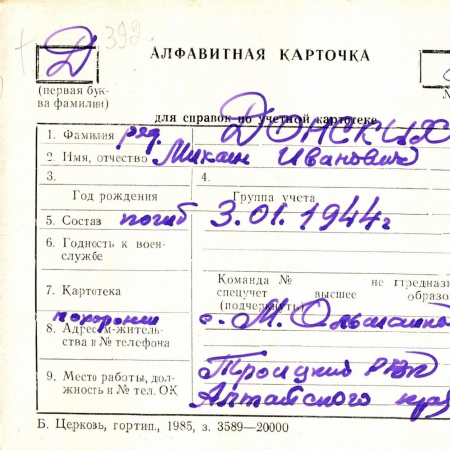 392
Д
АЛФАВИТНАЯ КАРТОЧКА
(первая бук-
ва фамилии)
№
для справок по учетной картотеке
1. Фамилия ряд. ДОНСКИХ
2. Имя, отчество Михаил Иванович
3.
4.
Год рождения
Группа учета
5. Состав погиб 3.01.1944г
6. Годность к воен-
службе
Команда № не предназна
7. Картотека
спецучет высшее образо
(подчеркнуть)
похоронен с. М.
8. Адрес м-житель-
ства и № телефона
Троицкий РВК
9. Место работы, дол-
жность и № тел. ОК
Алтайского края
Б. Церковь, гортип., 1985, з. 3589—20000